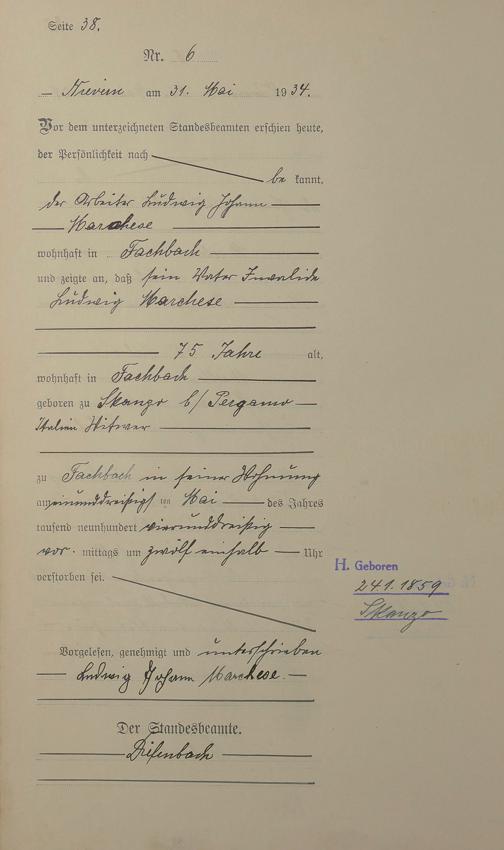 Seite 38.
Nr. 6
Nievern am 31. Mai 1934.
Vor dem unterzeichneten Standesbeamten erschien heute,
der Persönlichkeit nach
be kannt,
der Arbeiter Ludwig Johann
Marchese
wohnhaft in Fachbach
und zeigte an, daß sein Vater Invalide
Ludwig Marchese
75 Jahre alt,
wohnhaft in Fachbach
geboren zu Skanzo b/ Pergamo
Italien Witwer
zu Fachbach in seiner Wohnung
am einunddreißigst ten Mai des Jahres
tausend neunhundert vierunddreißig
vor mittags um zwölf einhalb Uhr
verstorben sei.
H. Geboren
24.1.1859
Skanzo
Vorgelesen, genehmigt und unterschrieben
Ludwig Johann Marchese.
Der Standesbeamte.
Diefenbach